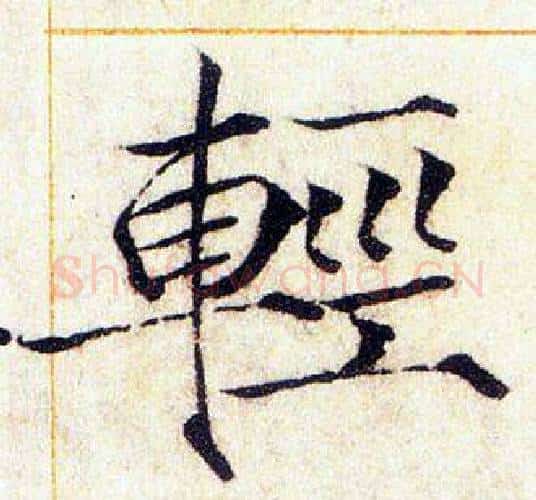 輕
Shufawang.CN